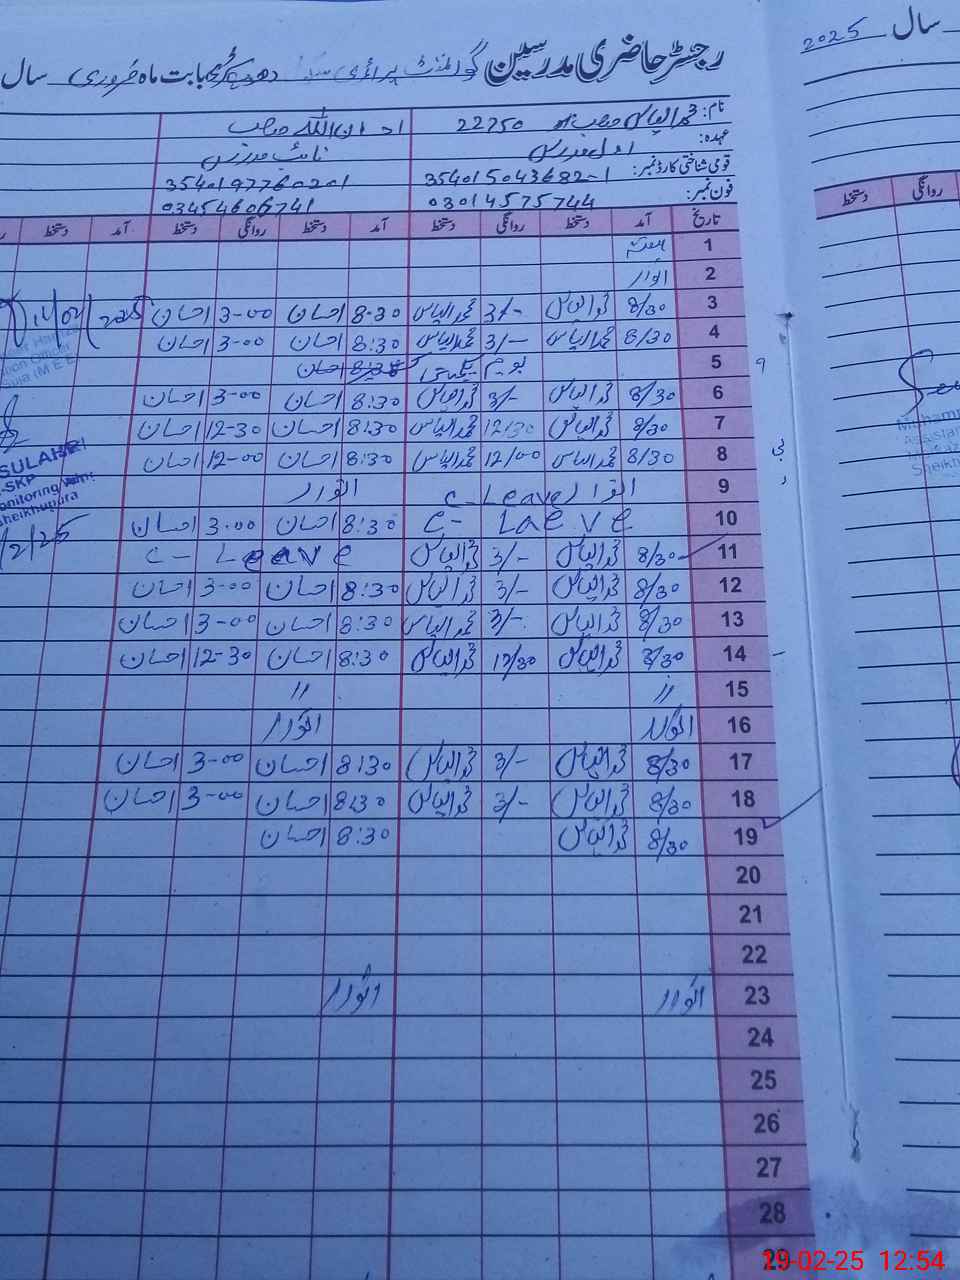 سال 2025
رجسٹر حاضری مدرسین گورنمنٹ پرائمری سکول بابت ماہ فروری سال
نام: محمد الیاس صاحب 22750 احسان اللہ صاحب
عہدہ: اول مدرس نائب مدرس
قومی شناختی کارڈ نمبر: 354015043682-1 3540197760201
فون نمبر: 03014575744 03454606741
تاریخ آمد دستخط روانگی دستخط آمد دستخط روانگی دستخط آمد دستخط
روانگی دستخط
1
2 اتوار
3 8/30 محمد الیاس 3/- محمد الیاس 8-30 احسان 3-00 احسان
4 8/30 محمد الیاس 3/- محمد الیاس 8:30 احسان 3-00 احسان
5 یوم یکجہتی
6 8/30 محمد الیاس 3/- محمد الیاس 8:30 احسان 3-00 احسان
7 8/30 محمد الیاس 12:30 محمد الیاس 8:30 احسان 12-30 احسان
8 8/30 محمد الیاس 12/00 محمد الیاس 8:30 احسان 12-00 احسان
9 اتوار C-Leave اتوار
10 C- LaeVe 8:30 احسان 3.00 احسان
11 8/30 محمد الیاس 3/- محمد الیاس C- Leave
12 8/30 محمد الیاس 3/- محمد الیاس 8:30 احسان 3-00 احسان
13 8/30 محمد الیاس 3/- محمد الیاس 8:30 احسان 3-00 احسان
14 8/30 محمد الیاس 12/30 محمد الیاس 8:30 احسان 12-30 احسان
15 // //
16 اتوار اتوار
17 8/30 محمد الیاس 3/- محمد الیاس 8:30 احسان 3-00 احسان
18 8/30 محمد الیاس 3/- محمد الیاس 8:30 احسان 3-00 احسان
19 8/30 محمد الیاس 8:30 احسان
20
21
22
23 اتوار اتوار
24
25
26
27
28
29
SULAHRI
-SKP
onitoring
heikhupura
/2/25
Muhamm
Assistan
Sheikh
19-02-25 12:54